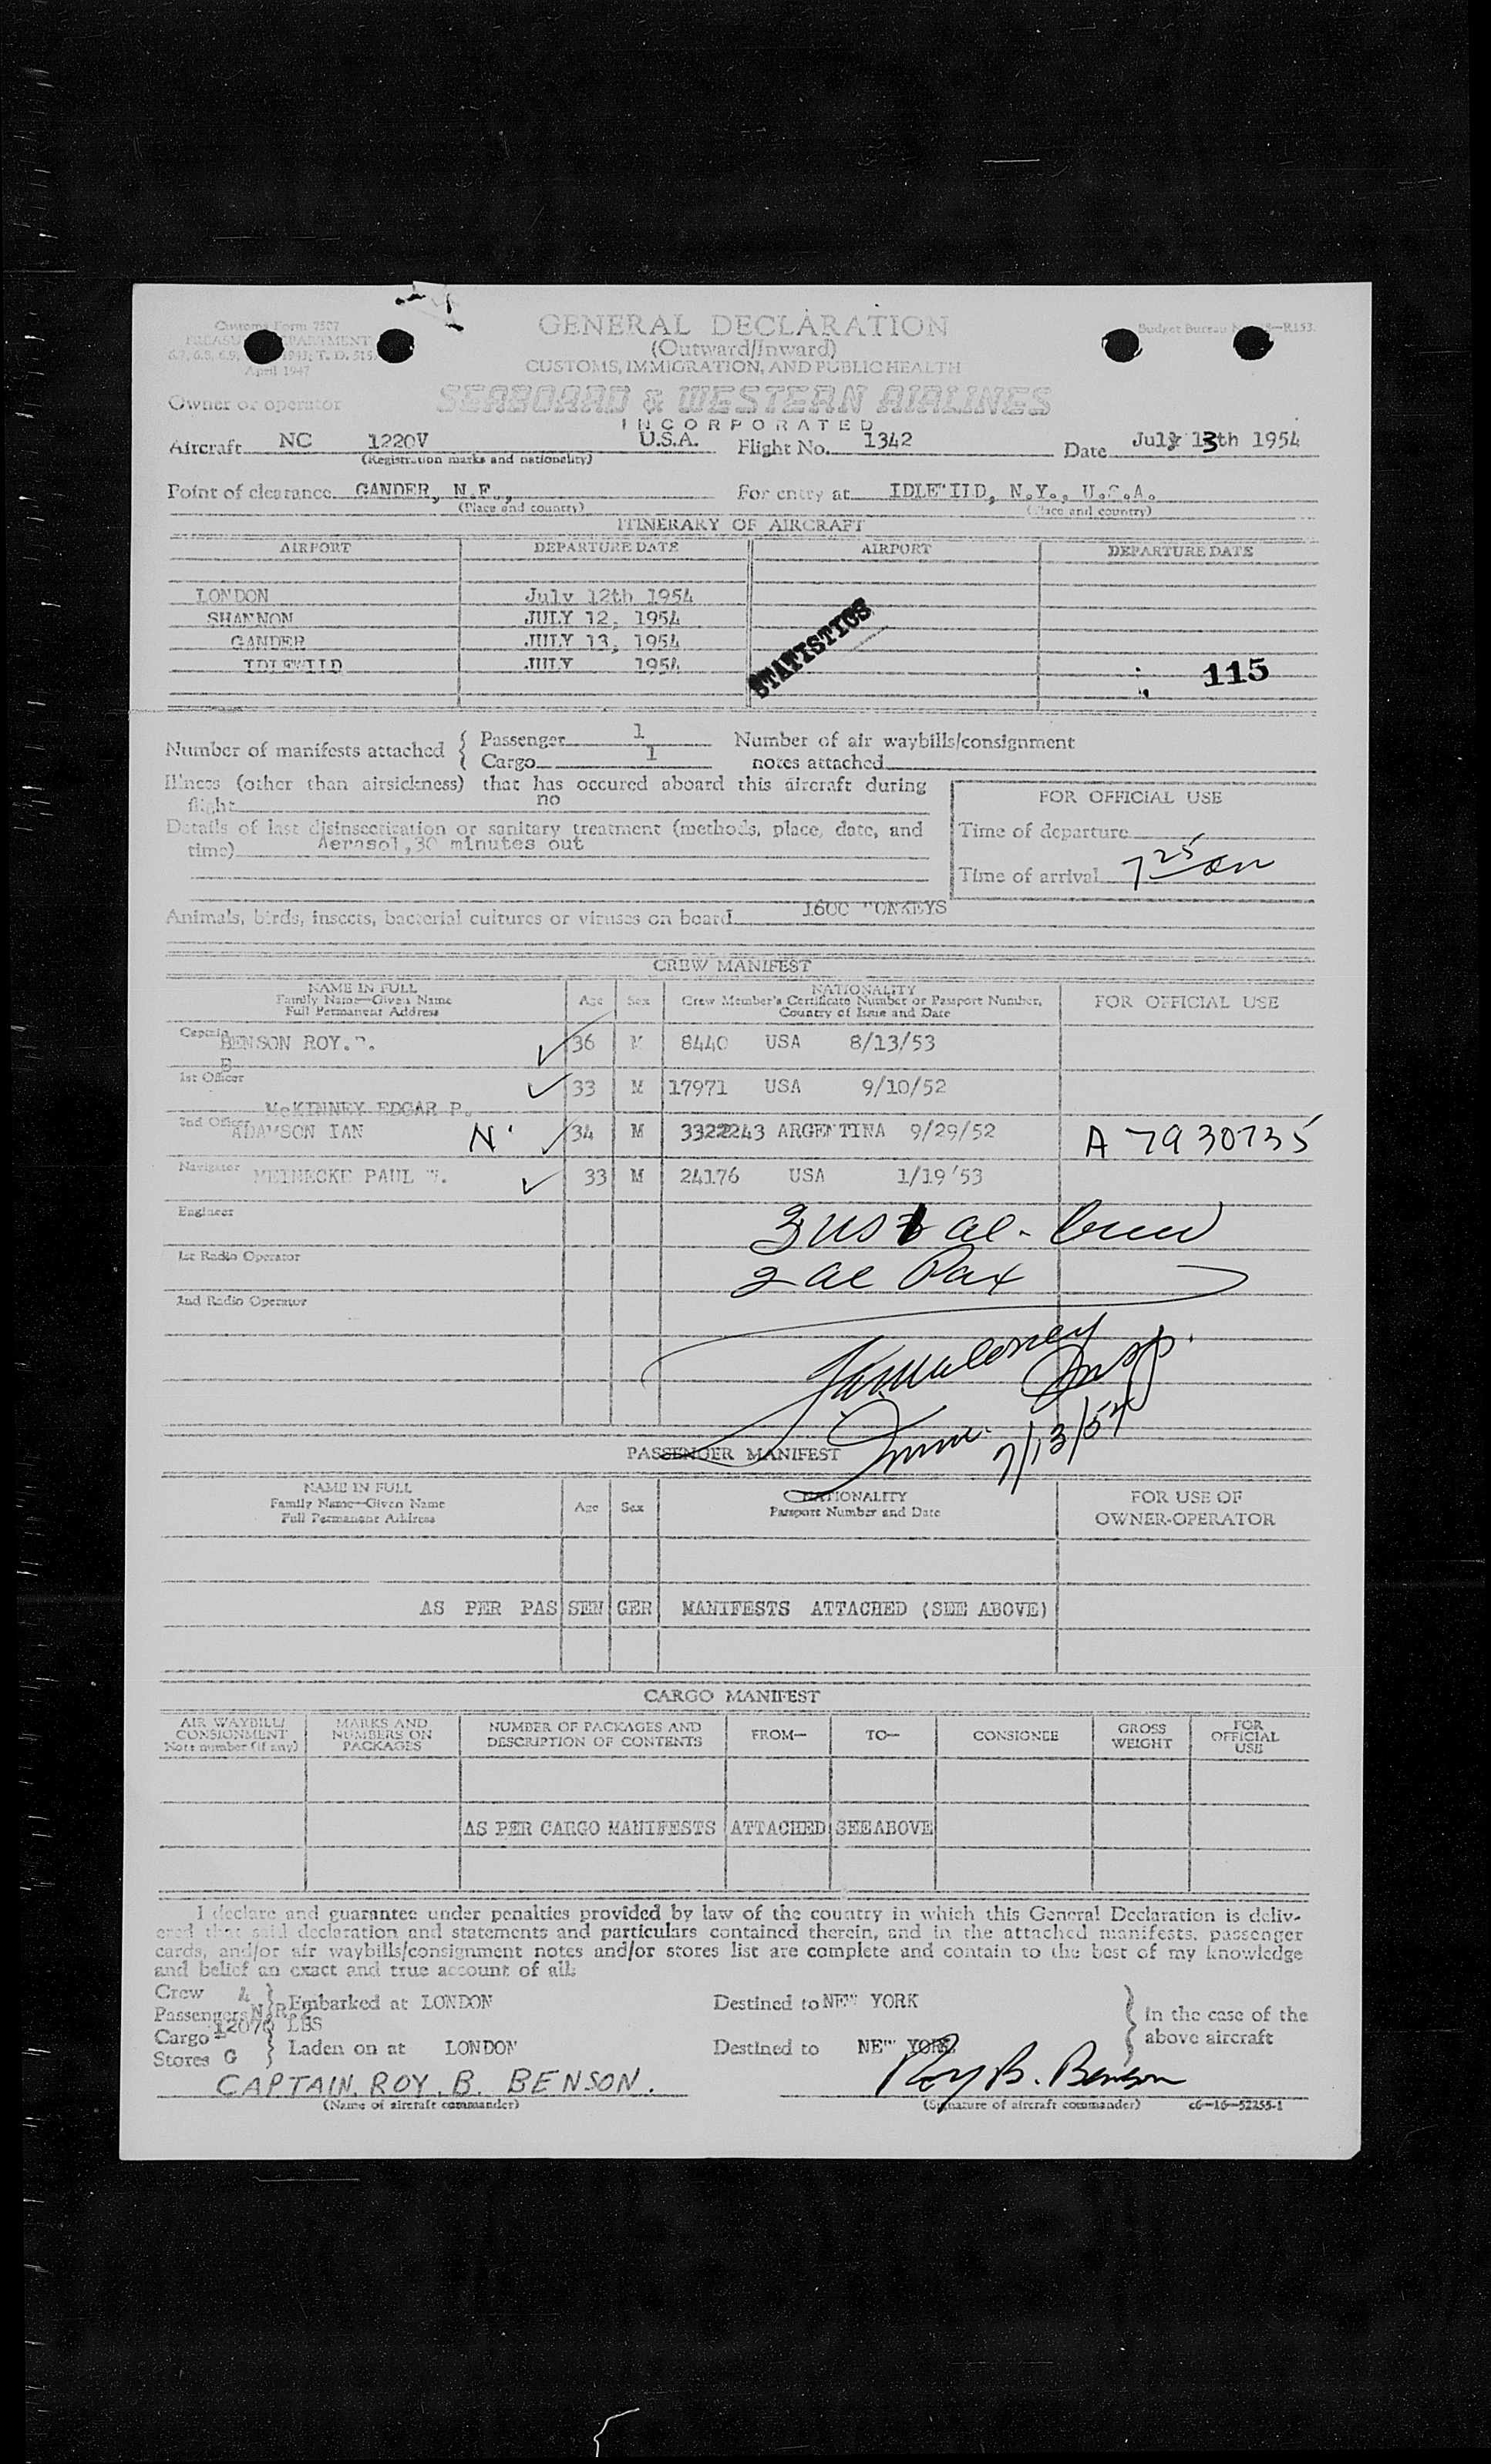 Customs Form 7507
TREASURY DEPARTMENT
6.7, 6.8, 6.9, 1943; T. D. 515
April 1947
GENERAL DECLARATION
(Outward/Inward)
CUSTOMS, IMMIGRATION, AND PUBLIC HEALTH
Budget Bureau No. -R153.
Owner or operator SEABOARD & WESTERN AIRLINES
INCORPORATED
Aircraft NC 1220V U.S.A. Flight No. 1342 Date July 13th 1954
(Registration marks and nationality)
Point of clearance GANDER, N.F., For entry at IDLEWILD, N.Y., U.S.A.
(Place and country) (Place and country)
ITINERARY OF AIRCRAFT
AIRPORT DEPARTURE DATE AIRPORT DEPARTURE DATE
LONDON July 12th 1954
SHANNON JULY 12, 1954
GANDER JULY 13, 1954
IDLEWILD JULY 1954
STATISTICS
115
Number of manifests attached { Passenger 1 Number of air waybills/consignment
Cargo 1 notes attached
Illness (other than airsickness) that has occured aboard this aircraft during
flight no
FOR OFFICIAL USE
Details of last disinsectization or sanitary treatment (methods, place, date, and
time) Aerasol, 30 minutes out
Time of departure
Time of arrival 7 25 am
Animals, birds, insects, bacterial cultures or viruses on board 1600 MONKEYS
CREW MANIFEST
NAME IN FULL
Family Name—Given Name
Full Permanent Address
Age Sex
NATIONALITY
Crew Member's Certificate Number or Passport Number,
Country of Issue and Date
FOR OFFICIAL USE
Captain BENSON ROY. 36 M 8440 USA 8/13/53
B
1st Officer McKINNEY EDGAR P. 33 M 17971 USA 9/10/52
2nd Officer ADAMSON IAN N 34 M 3322243 ARGENTINA 9/29/52 A 7930735
Navigator MEINECKE PAUL W. 33 M 24176 USA 1/19/53
Engineer
1st Radio Operator
2nd Radio Operator
3 US 1 al. Crew
2 al Pax
Maloney Insp.
Imm. 7/13/54
PASSENGER MANIFEST
NAME IN FULL
Family Name—Given Name
Full Permanent Address
Age Sex
NATIONALITY
Passport Number and Date
FOR USE OF
OWNER-OPERATOR
AS PER PASSENGER MANIFESTS ATTACHED (SEE ABOVE)
CARGO MANIFEST
AIR WAYBILL/
CONSIGNMENT
Note number (if any)
MARKS AND
NUMBERS ON
PACKAGES
NUMBER OF PACKAGES AND
DESCRIPTION OF CONTENTS
FROM— TO— CONSIGNEE
GROSS
WEIGHT
FOR
OFFICIAL
USE
AS PER CARGO MANIFESTS ATTACHED SEE ABOVE
I declare and guarantee under penalties provided by law of the country in which this General Declaration is deliv-
ered that said declaration and statements and particulars contained therein, and in the attached manifests, passenger
cards, and/or air waybills/consignment notes and/or stores list are complete and contain to the best of my knowledge
and belief an exact and true account of all:
Crew 4
Passengers } Embarked at LONDON Destined to NEW YORK } in the case of the
above aircraft
Cargo 12070 LBS
Stores G } Laden on at LONDON Destined to NEW YORK
CAPTAIN. ROY. B. BENSON. Roy B. Benson
(Name of aircraft commander) (Signature of aircraft commander) c6—16—52255-1